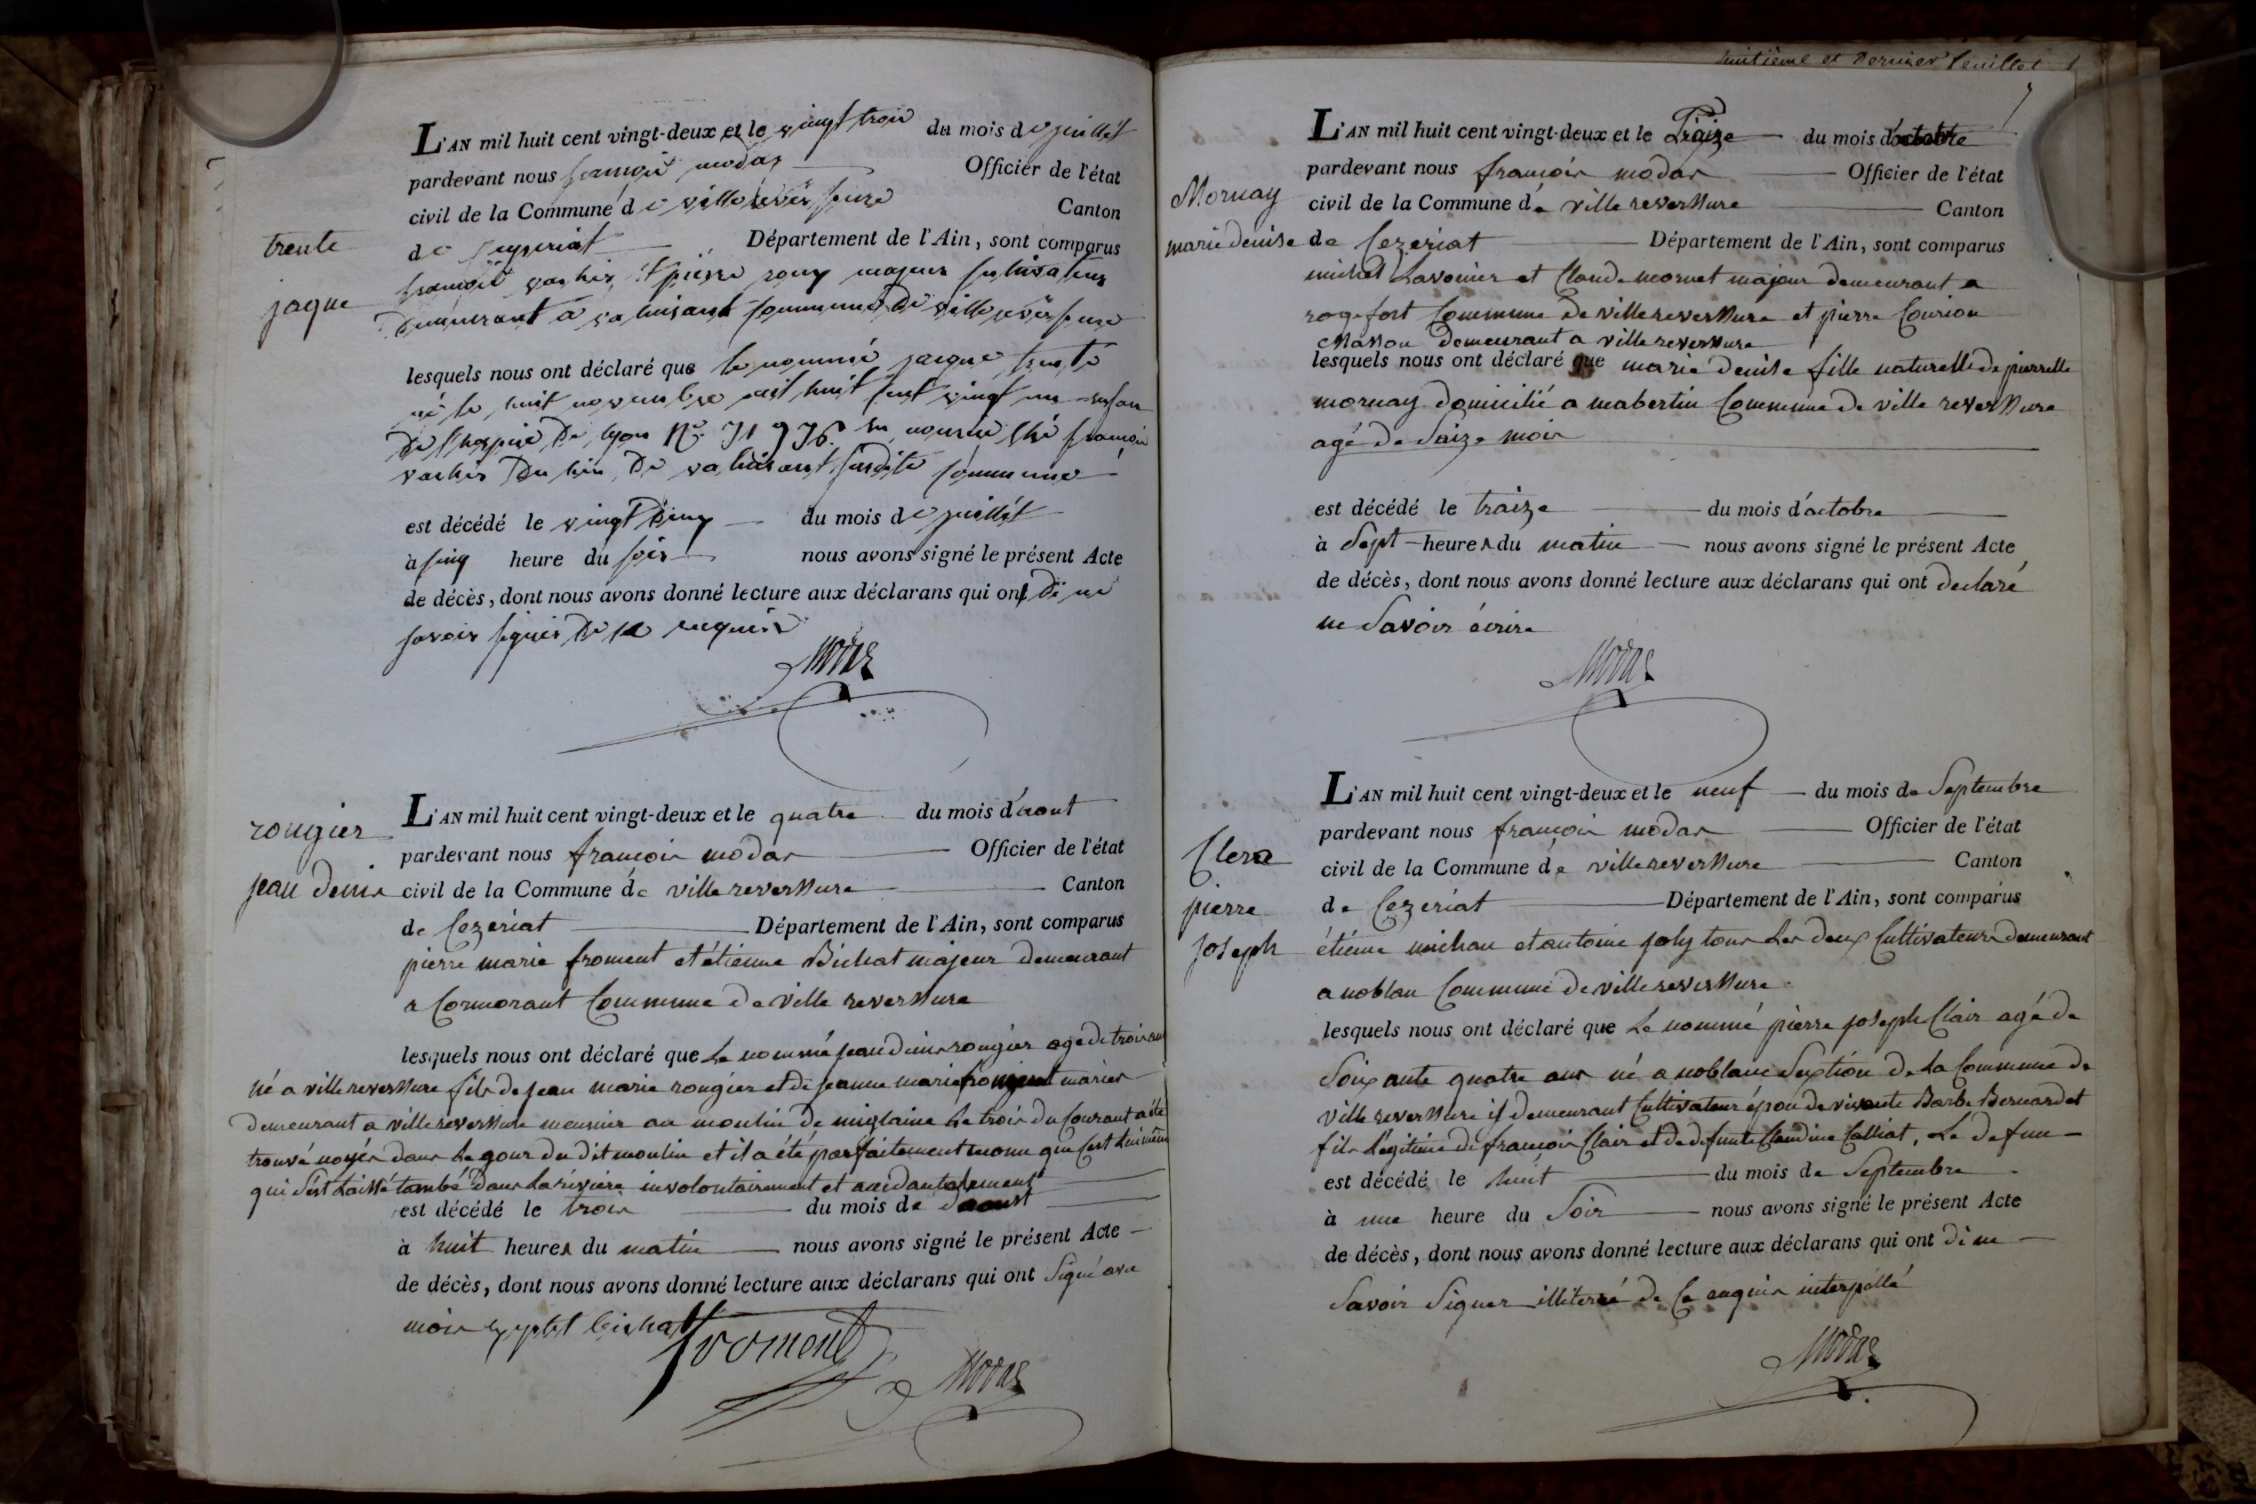 L'AN mil huit cent vingt-deux et le vingt trois du mois de juillet
pardevant nous françois modas Officier de l'état
civil de la Commune de villereversure Canton
de Canton Département de l'Ain, sont comparus
françois vachis et pierre majeurs cultivateurs
demeurant à commune de villereversure
trente
jaque
lesquels nous ont déclaré que le nommé jacque trente
né le huit novembre mil huit cent vingt un enfant
de l'hospice de lyon N°. en nourrice ché françois
vachis du lieu de susdite commune
est décédé le vingt deux du mois de juillet
à cinq heure du soir nous avons signé le présent Acte
de décès, dont nous avons donné lecture aux déclarans qui ont di ne
savoir signer de ce enquis
Modas
rougier
jean denis
L'AN mil huit cent vingt-deux et le quatre du mois d'aout
pardevant nous françois modas Officier de l'état
civil de la Commune de villereversure Canton
de Cezeriat Département de l'Ain, sont comparus
pierre marie froment et étienne Bichat majeur demeurant
a Cormorant Commune de ville reversure
lesquels nous ont déclaré que Le nommé jean denis rougier age de trois ans
né a villereversure fils de jean marie rougier et de jeanne marie froment mariés
demeurant a villereversure meunier au moulin de Le trois du Courant a été
trouvé noyés dans Le gour du dit moulin et il a été parfaitement que C'est Lui même
qui s'est Laissé tombé dans La rivière involontairement et accidantalement
est décédé le trois du mois de daoust
à huit heures du matin nous avons signé le présent Acte
de décès, dont nous avons donné lecture aux déclarans qui ont Signé avec
bichat froment
Modas
huitième et Dernier feuillet
L'AN mil huit cent vingt-deux et le Traize du mois d'octobre
pardevant nous françois modas Officier de l'état
civil de la Commune de villereversure Canton
de Cezeriat Département de l'Ain, sont comparus
Mornay
marie denise
michel Lavenier et Claude mornet majeur demeurant a
rogefort Commune de villereversure et pierre Courion
Masson demeurant a villereversure
lesquels nous ont déclaré que marie denise fille naturelle de pierrette
mornay domicilié a mabertin Commune de ville reversure
agé de Saize mois
est décédé le traize du mois d'octobre
à Sept heures du matin nous avons signé le présent Acte
de décès, dont nous avons donné lecture aux déclarans qui ont declaré
ne Savoir écrire
Modas
Clere
pierre
joseph
L'AN mil huit cent vingt-deux et le neuf du mois de Septembre
pardevant nous françois modas Officier de l'état
civil de la Commune de villereversure Canton
de Cezeriat Département de l'Ain, sont comparus
étiene michau et antoine joly tous Les deux Cultivateurs demeurant
a noblan Commune de villereversure
lesquels nous ont déclaré que Le nommé pierre joseph Clair agé de
Soixante quatre ans né a noblanc Sextion de La Commune de
ville reversure y demeurant Cultivateur épou de vivante Barbe Bernard et
fils Légitime de françois Clair et de defunte Claudine Calliat, Le defun
est décédé le huit du mois de Septembre
à une heure du Soir nous avons signé le présent Acte
de décès, dont nous avons donné lecture aux déclarans qui ont di ne
Savoir Signer illiterré de Ce enquis interpéllé
Modas